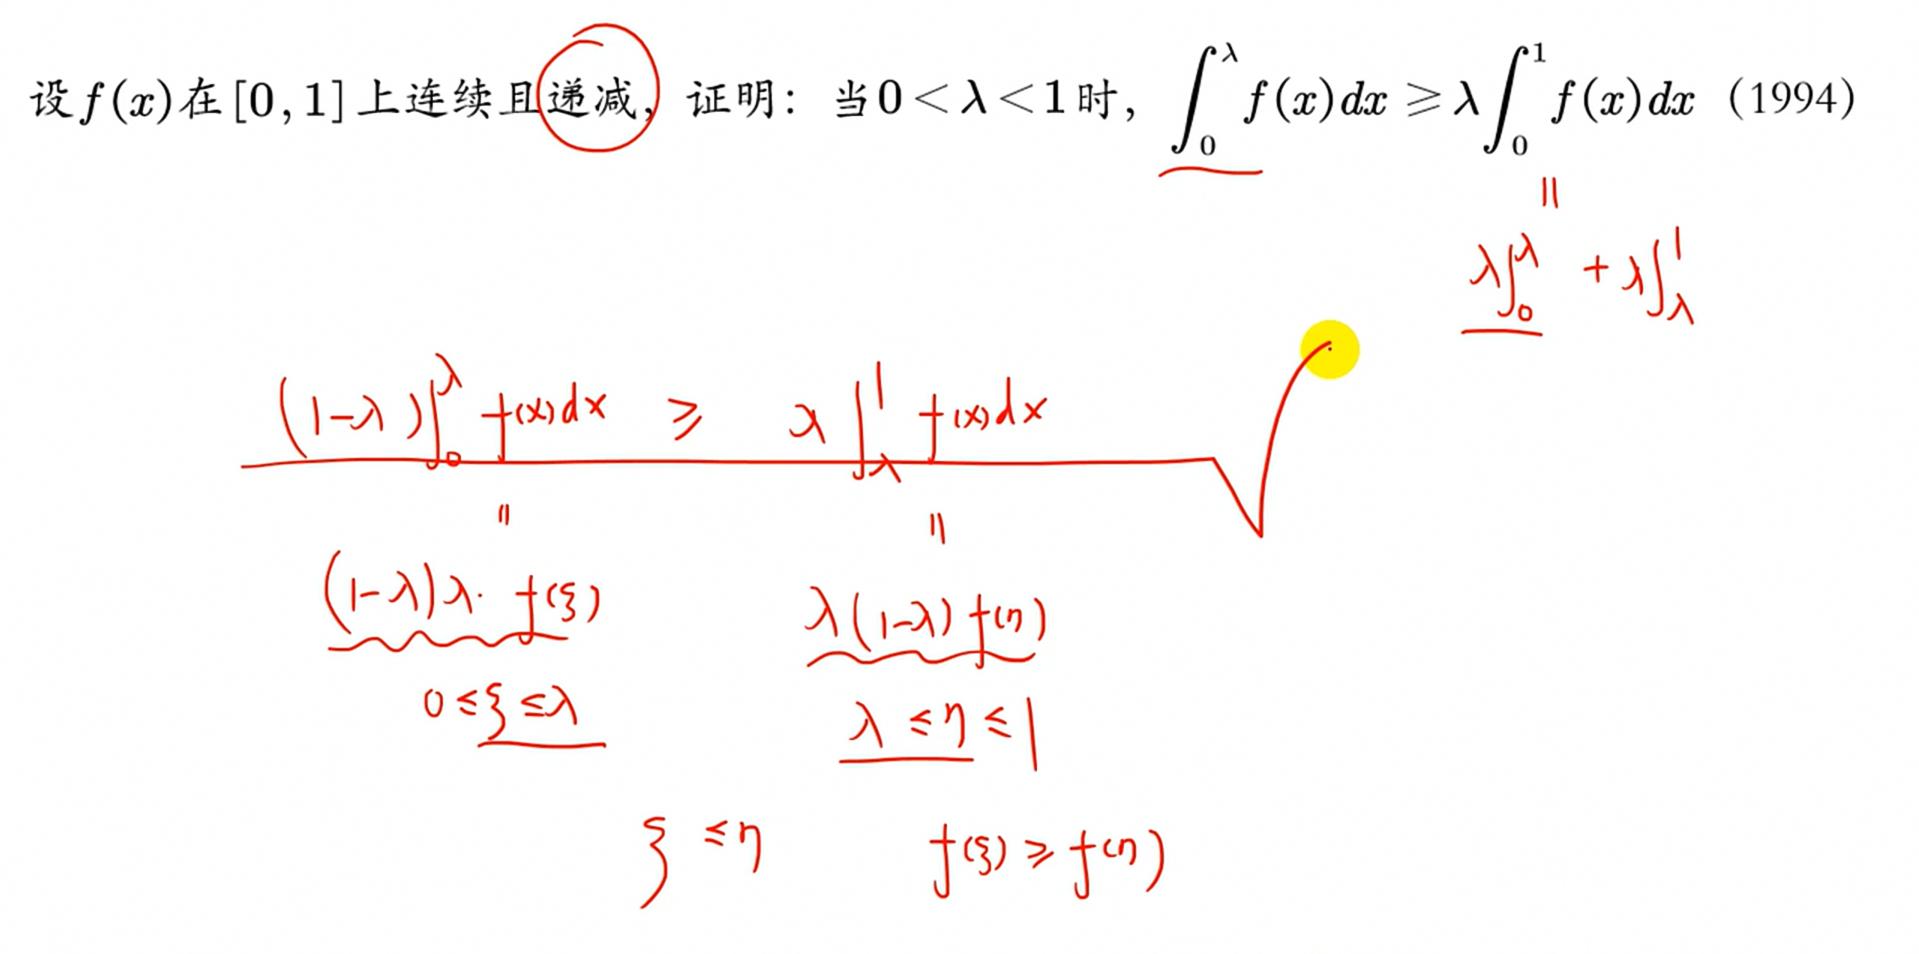 设f(x)在[0,1]上连续且递减，证明：当0<λ<1时，∫₀^λ f(x)dx ⩾ λ∫₀¹ f(x)dx (1994)
=
λ∫₀^λ + λ∫_λ^1
(1-λ)∫₀^λ f(x)dx ⩾ λ∫_λ^1 f(x)dx
= =
(1-λ)λ· f(ξ) λ(1-λ) f(η)
0≤ξ≤λ λ≤η≤1
ξ≤η f(ξ)⩾f(η)